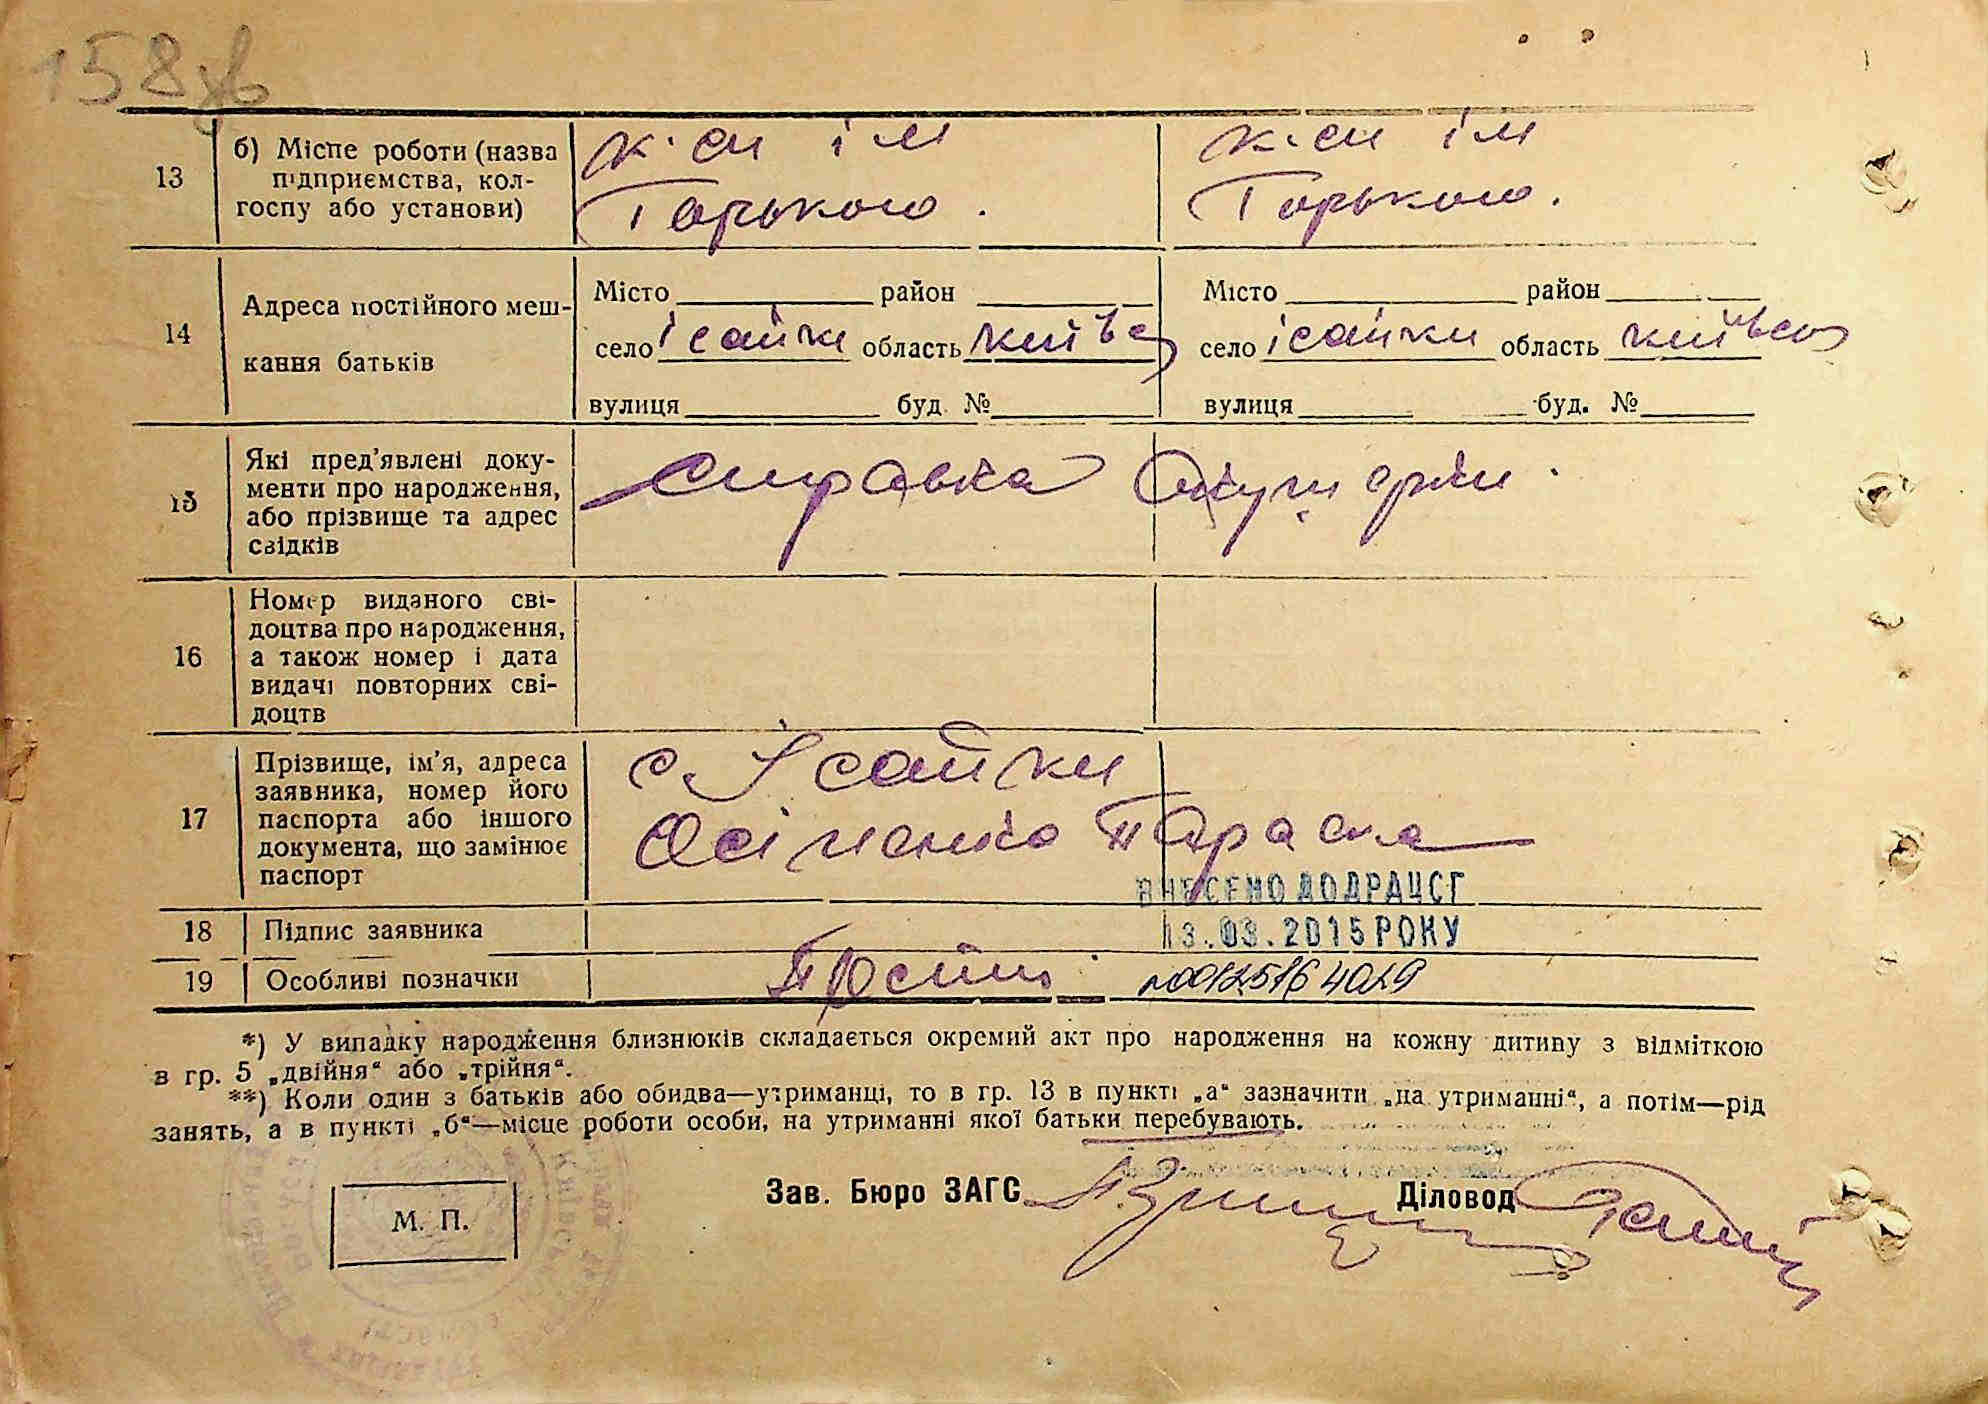 158зв
13 б) Місце роботи (назва підприємства, колгоспу або установи)
к-сп ім Горького. к-сп ім Горького.
14 Адреса постійного мешкання батьків
Місто район Місто район
село Ісайки область Київс село Ісайки область Київсь
вулиця буд. № вулиця буд. №
15 Які пред'явлені документи про народження, або прізвище та адрес свідків
справка Акушерки.
16 Номер виданого свідоцтва про народження, а також номер і дата видачі повторних свідоцтв
17 Прізвище, ім'я, адреса заявника, номер його паспорта або іншого документа, що замінює паспорт
с Ісайки
Осіпенко Параска
ВНЕСЕНО ДО ДРАЦСГ
18 Підпис заявника
13.03.2015 РОКУ
19 Особливі позначки
№00125164029
*) У випадку народження близнюків складається окремий акт про народження на кожну дитину з відміткою
в гр. 5 „двійня“ або „трійня“.
**) Коли один з батьків або обидва—утриманці, то в гр. 13 в пункті „а“ зазначити „на утриманні“, а потім—рід
занять, а в пункті „б“—місце роботи особи, на утриманні якої батьки перебувають.
Зав. Бюро ЗАГС Діловод
М. П.